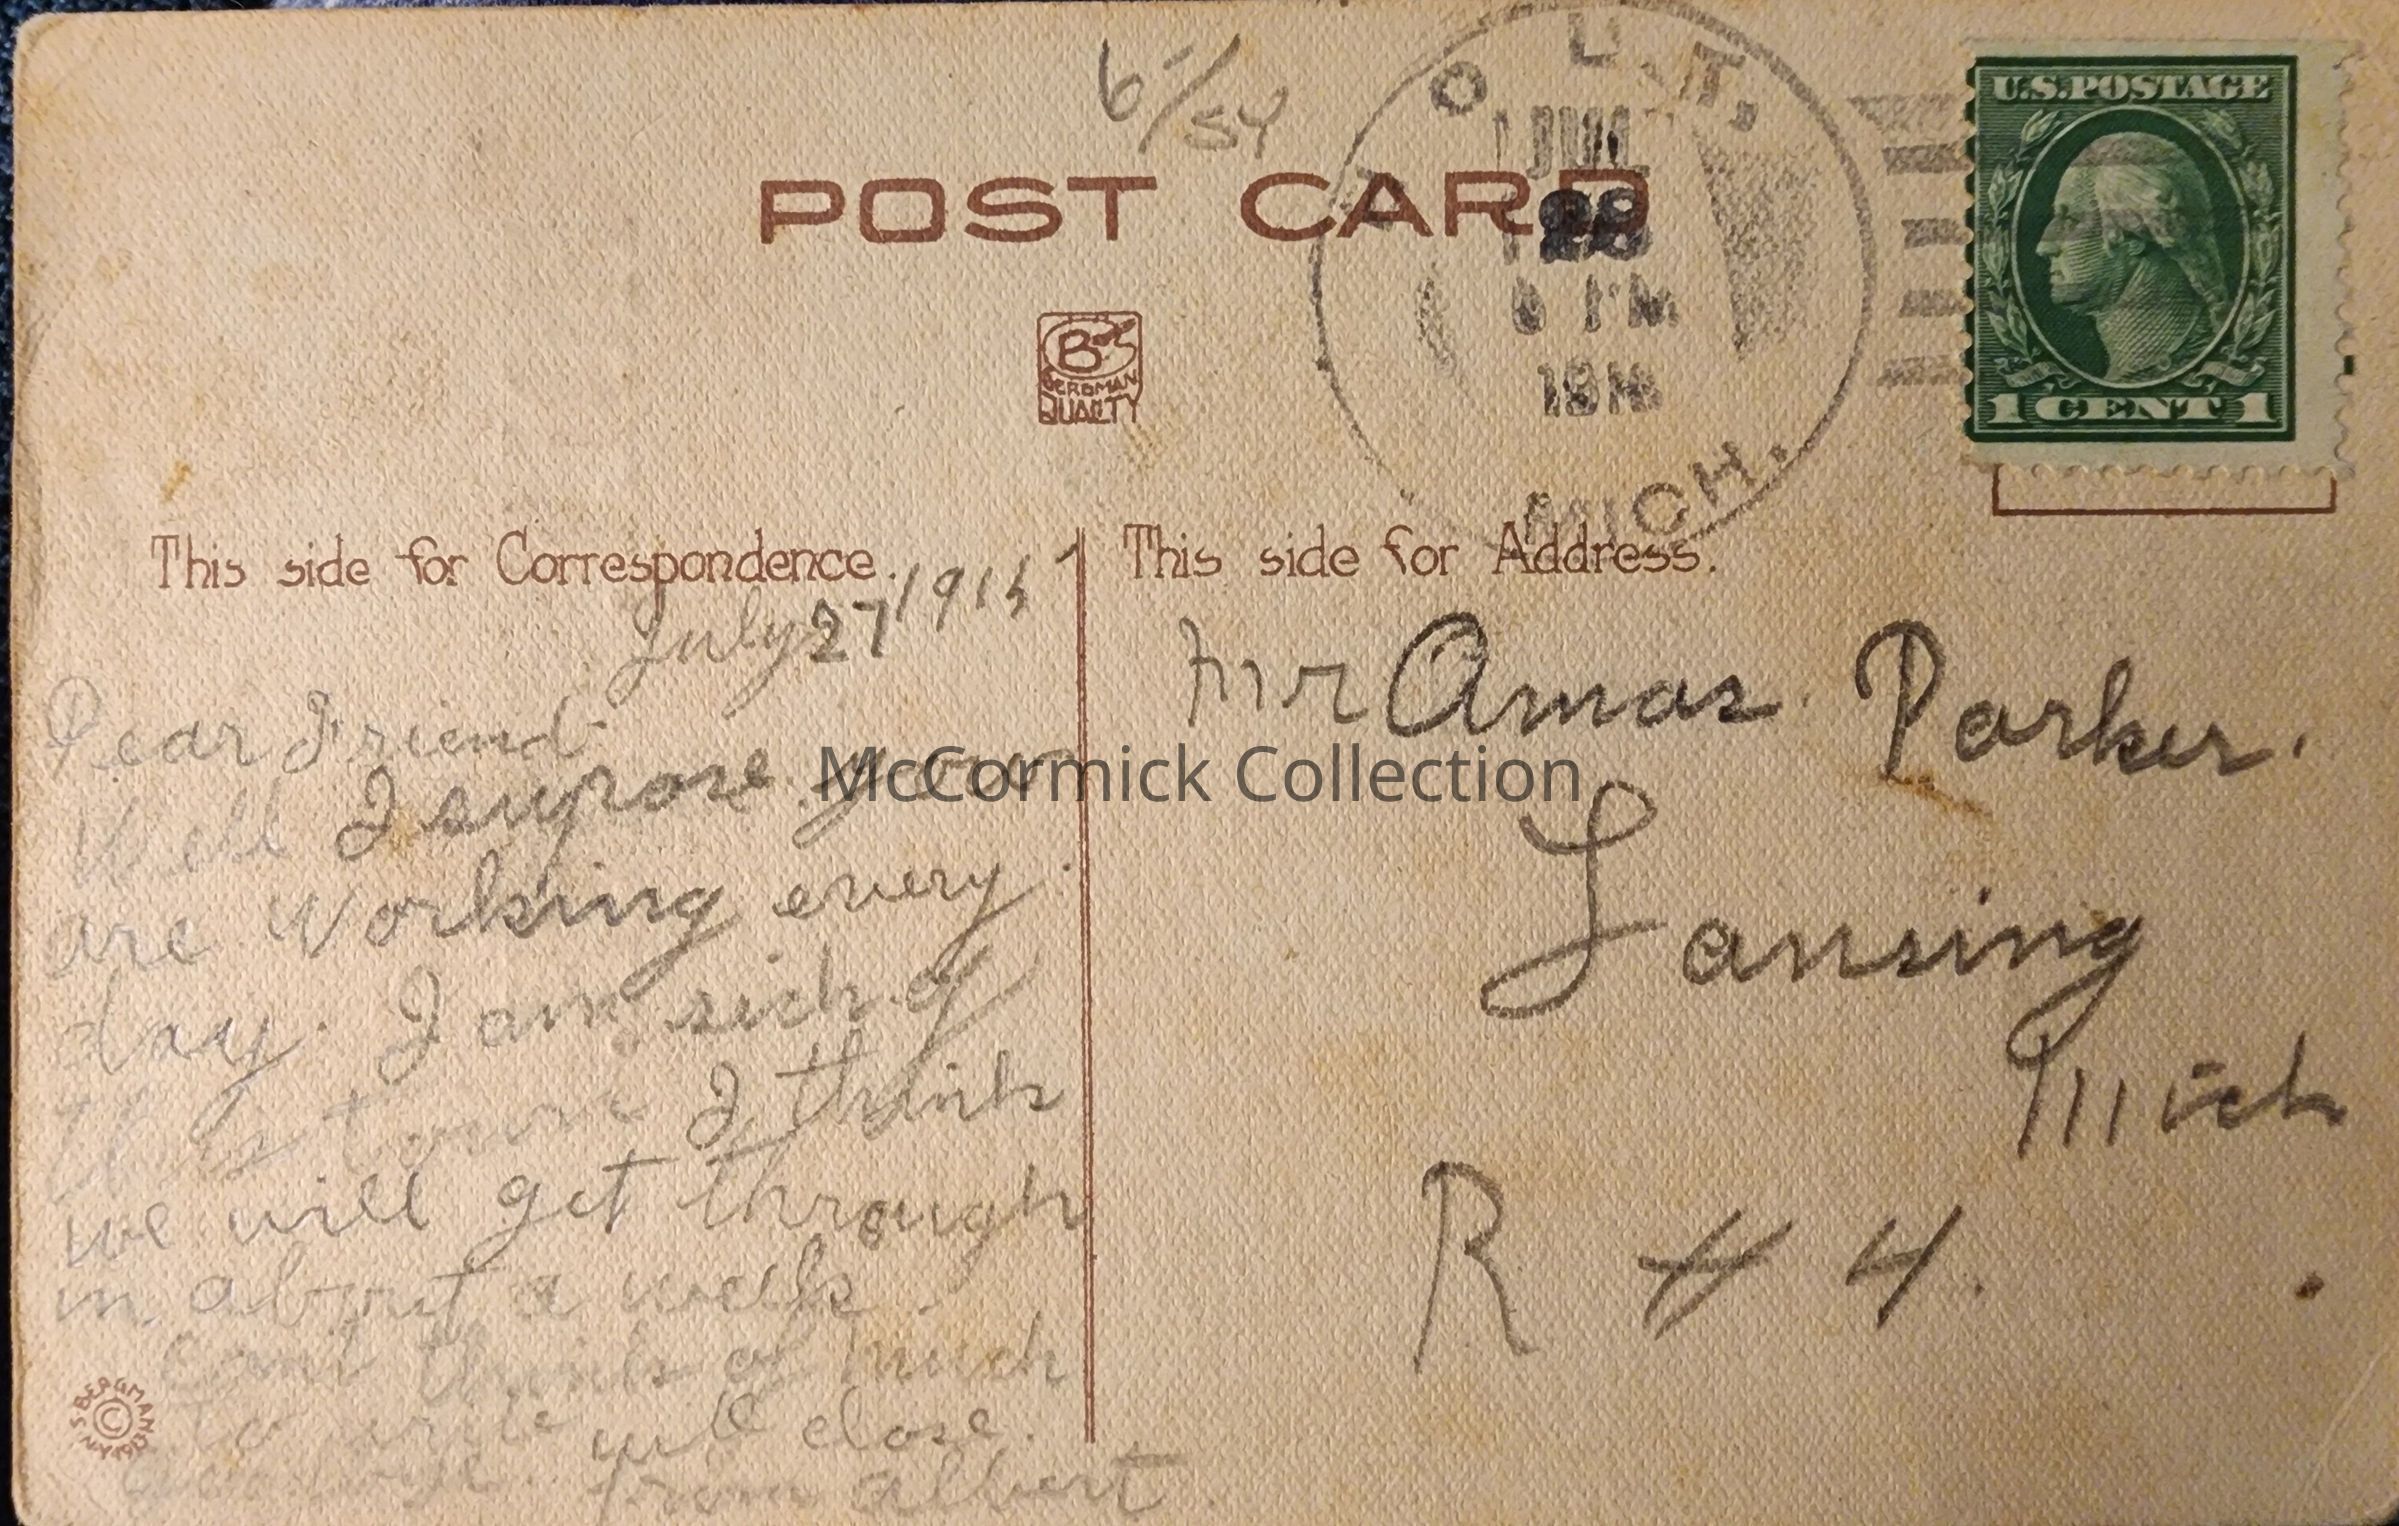 6/54
O L T,
JUL
28
PM
MICH.
U.S. POSTAGE
1 CENT 1
POST CARD
B
BERGMAN
QUALITY
This side for Correspondence.
This side for Address.
July 27 1915
Dear Friend
Well I supose you
are working every
day. I am sick of
this town I think
we will get through
in about a week.
cant think of much
to write will close.
from Albert
Mr Amas. Parker.
Lansing
Mich
R # 4.
© S BERGMAN
McCormick Collection